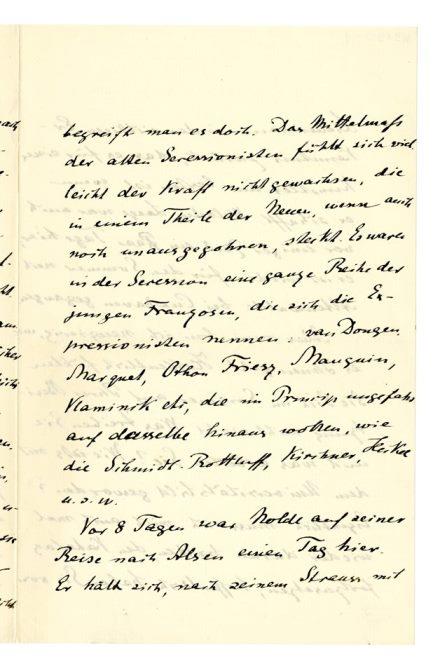 begreift man es doch. Das Mittelmass
der alten Secessionisten fühlt sich viel
leicht der Kraft nicht gewachsen, die
in einem Theile der Neuen, wenn auch
noch unausgegohren, steckt. Es waren
in der Secession eine ganze Reihe der
jungen Franzosen, die sich die Ex-
pressionisten nennen: van Dongen
Marquet, Othon Friesz, Manguin,
Vlaminck etc, die im Prinzip ungefähr
auf dasselbe hinaus wollen, wie
die Schmidt-Rottluff, Kirchner, Heckel
u.s.w.
Vor 8 Tagen war Nolde auf seiner
Reise nach Alsen einen Tag hier.
Er hält sich, nach seinem Streuss mit